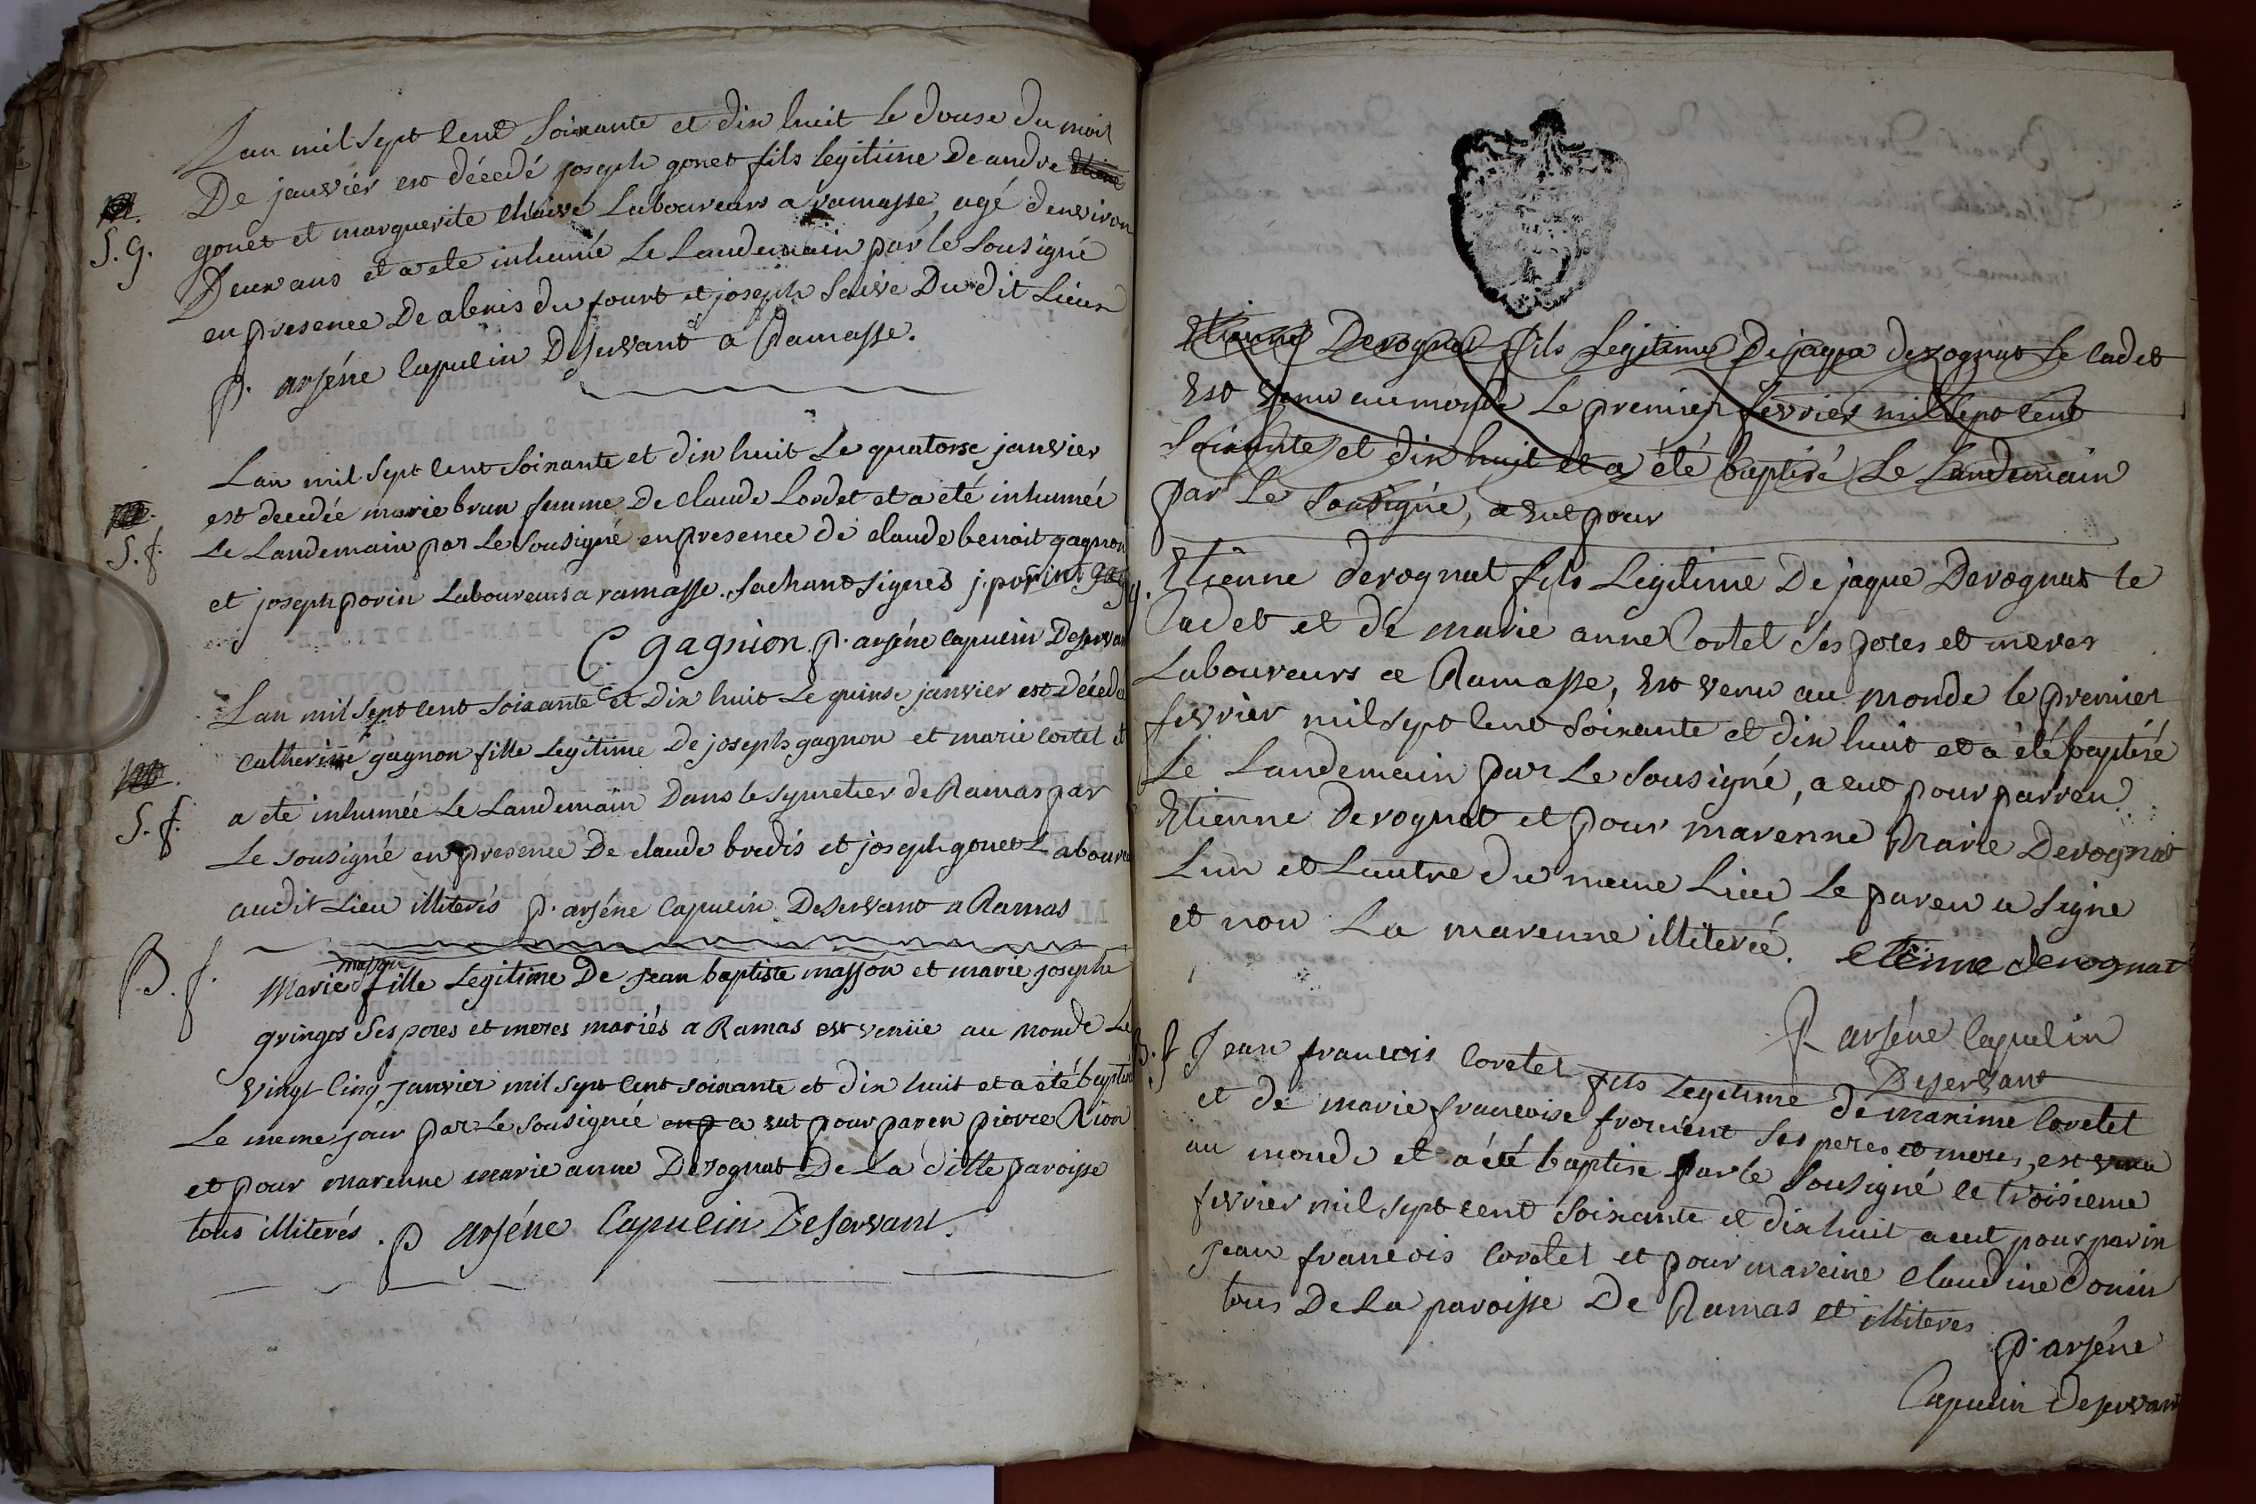 Lan mil sept Cent Soixante et dix huit Le douse du mois
De janvier est décedé joseph gonet fils legitime De andre
S. g.
gonet et marguerite Chaive Laboureurs a ramasse, agé denviron
Deux ans et a ete inhumé Le Landemain par le Sousigné
en presence De alexis du fourt et joseph Saive Du dit Lieux
p. arséne Capucin Deservant a Ramasse.
Lan mil Sept Cent Soixante et dix huit Le quatorse janvier
est decedée marie brun femme De Claude Cordet et a été inhumée
S. f.
Le Landemain par Le Sousigné en presence de claude benoit gagnon
et joseph porin Laboureurs a ramasse. Sachant signés j. porint
C. gagnion. p. arséne capucin Deserван
Lan mil Sept cent Soixante et Dix huit Le quinse janvier est Décede
Catherine gagnon fille Legitime De joseph gagnon et marie cortet et
S. f.
a ete inhumée Le Landemain Dans le symetier de Ramas par
Le sousigné en presence De claude bredis et joseph gonet Laboure
audit Lieu illiterés p. arséne Capucin Deservant a Ramas
B. f.
masson
Marie fille Legitime De jean baptiste masson et marie josephe
gringos Ses peres et meres mariés a Ramas est venüe au monde Le
vingt Cinq janvier mil sept Cent soixante et dix huit et a été baptisé
Le meme jour par Le Sousignée en p a eut pour paren pierre Nion
et pour marenne marie anne Derognat De La ditte paroisse
tous illiterés. p arséne Capucin Deservant.
Etienne Derognat fils Legitime De jaque derognat Le Cadet
Est venu au monde Le premier fevrier mil sept Cent
Soixante et dix huit et a été baptisé Le Landemain
par Le Sousigné, a eut pour
g. Etienne derognat fils Legitime De jaque Derognat le
Cadet et de marie anne Cortet Ses peres et meres
Laboureurs a Ramasse, Est venu au monde le premier
fevrier mil sept Cent Soixante et dix huit et a été baptisé
Le Landemain par Le Sousigné, a eut pour parren
Etienne Derognat et pour marenne Marie Derognat
Lun et Lautre du meme Lieu Le paren a signe
et non La marenne illiterée. etienne derognat
P arséne Capucin
Deservant
Jean francois Coretet fils Legitime de maxime Coretet
et de marie francoise froment Ses peres et meres, est venu
au monde et a été baptise par le Sousigné le troisieme
fevrier mil sept cent Soixante et dix huit a eut pour parin
jean francois Coretet et pour mareine Claudine Donin
tous De La paroisse De Ramas et illiteres
p. arséne
Capucin deservant